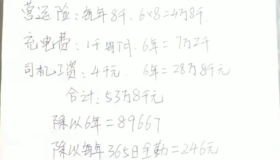 营运险:每年8千,6×8=4万8千
充电费:1千每月,6年=7万2千
司机工资:4千元,6年=28万8千元
合计:53万8千元
除以6年=89667
除以每年365日全勤=246元